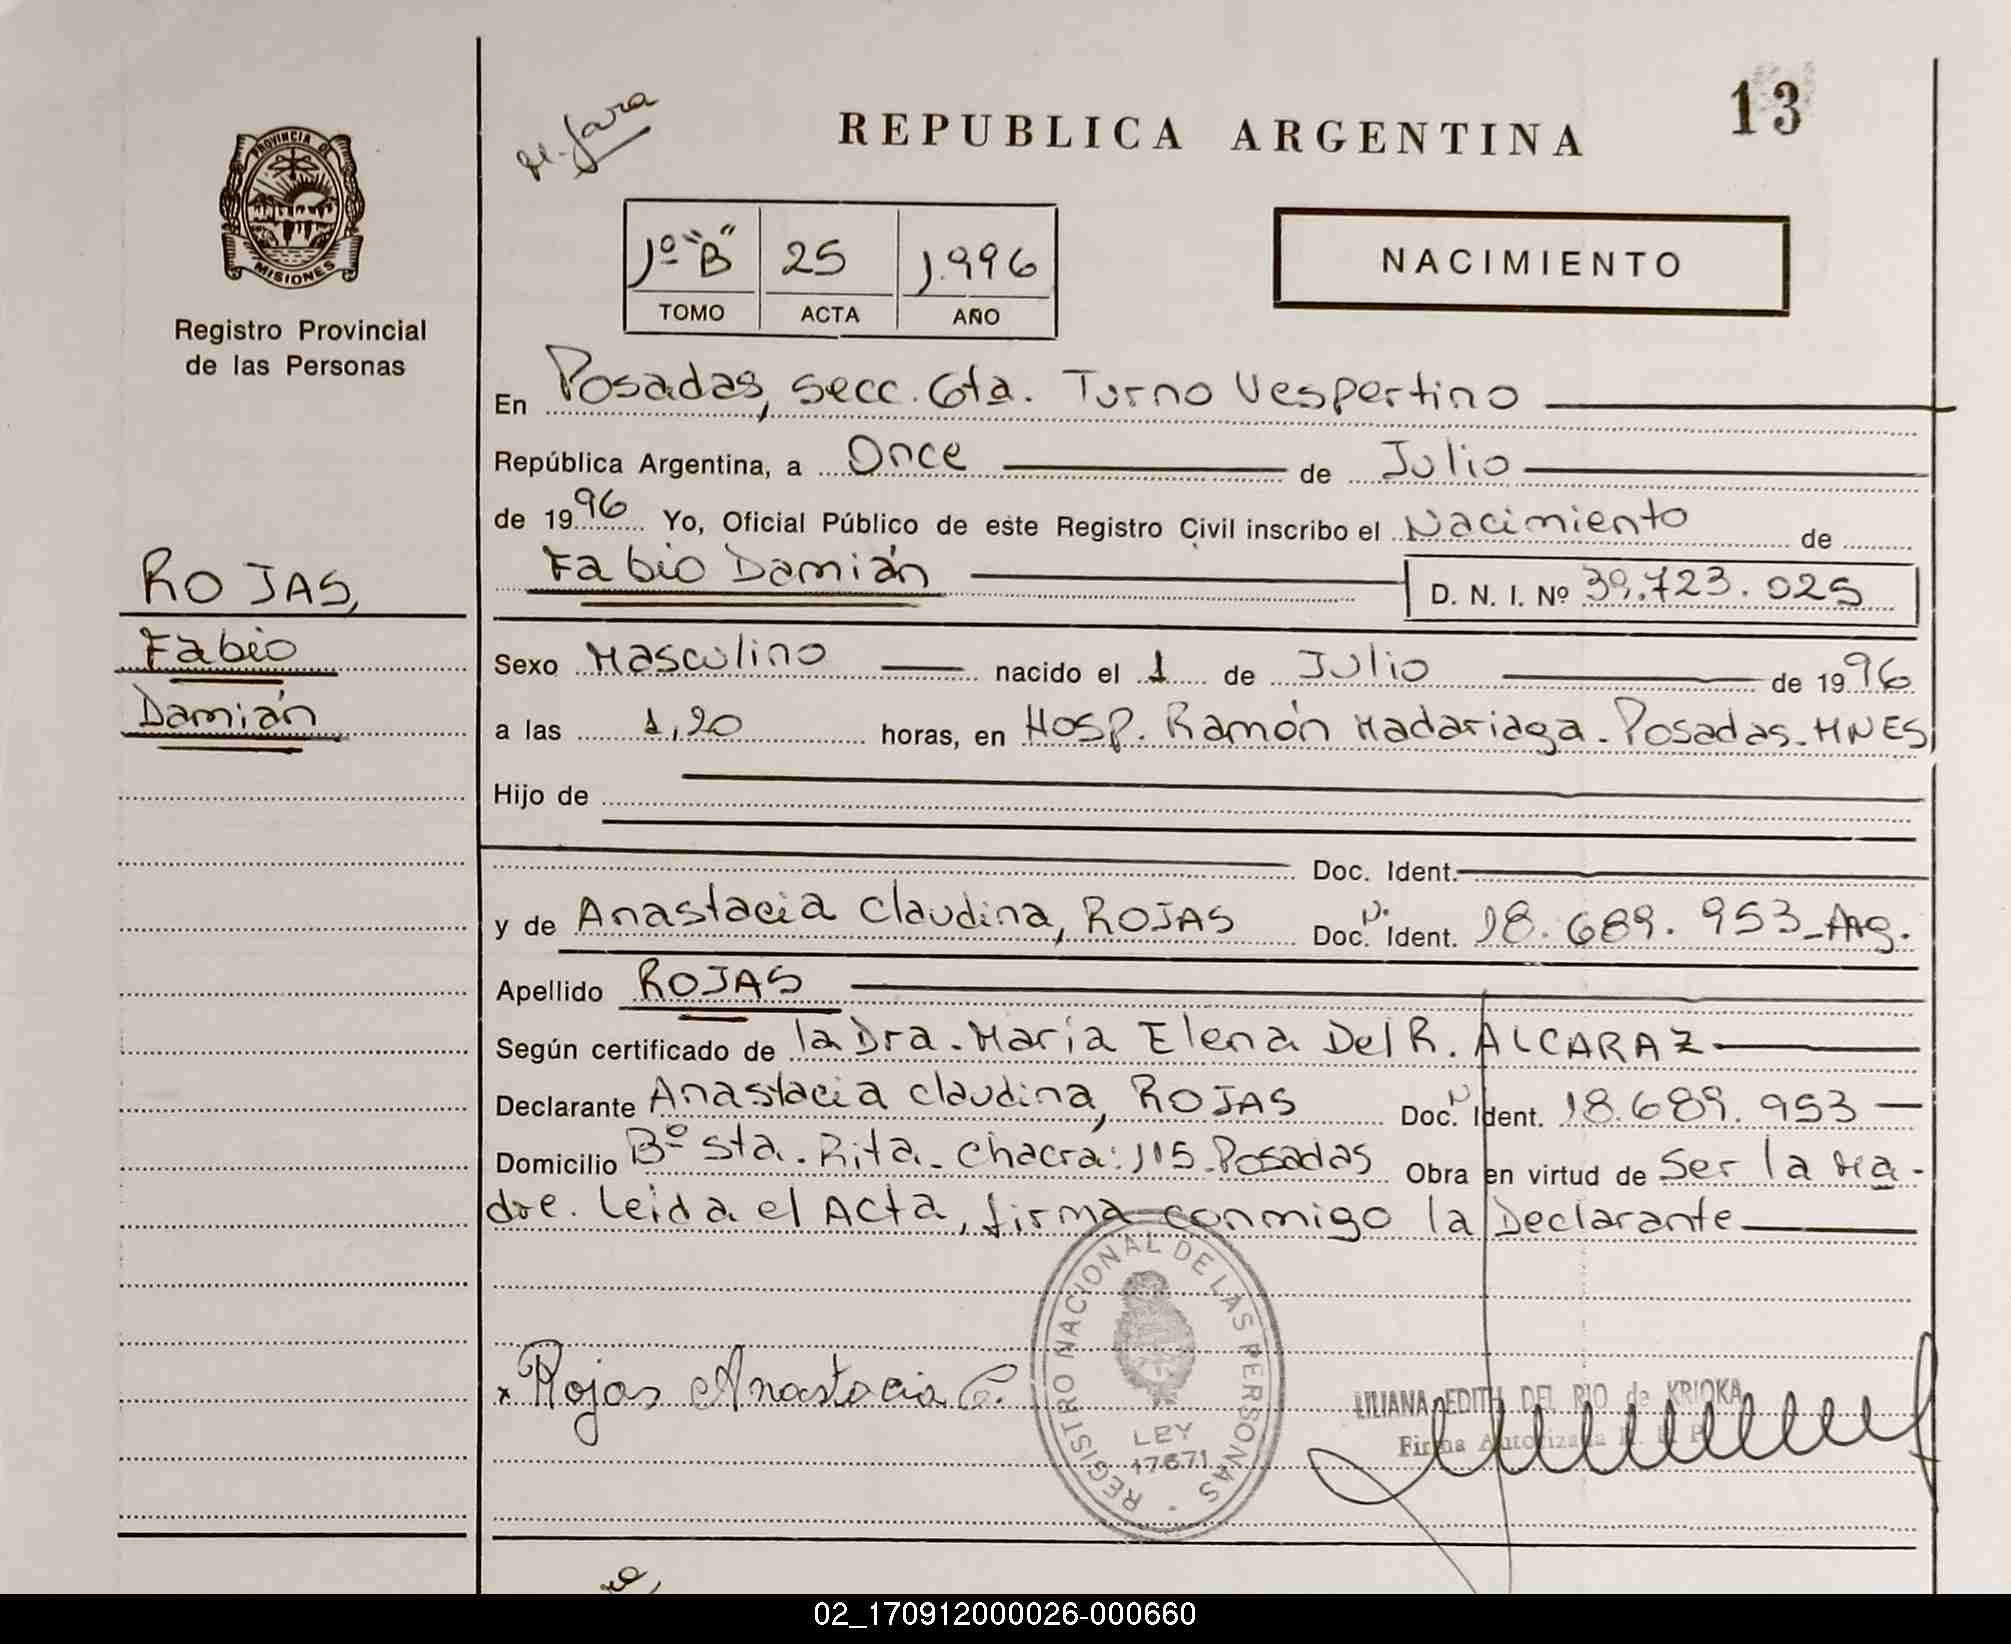 13
REPUBLICA ARGENTINA
PROVINCIA DE
MISIONES
Registro Provincial
de las Personas
1º "B" 25 1.996
TOMO ACTA AÑO
NACIMIENTO
En Posadas, Secc. 6ta. Turno Vespertino
República Argentina, a Once de Julio
de 1996 Yo, Oficial Público de este Registro Civil inscribo el Nacimiento de
Fabio Damián D. N. I. Nº 39.723.025
ROJAS,
Fabio
Damián
Sexo Masculino nacido el 1 de Julio de 1996
a las 1,20 horas, en Hosp. Ramón Madariaga - Posadas - MNES
Hijo de
Doc. Ident.
y de Anastacia Claudina, ROJAS Doc. N. Ident. 18.689.953 - Arg.
Apellido ROJAS
Según certificado de la Dra. María Elena Del R. ALCARAZ
Declarante Anastacia Claudina, ROJAS Doc. N Ident. 18.689.953
Domicilio Bº Sta. Rita - Chacra: 115 - Posadas Obra en virtud de Ser la Ma-
dre. Leida el Acta, firma conmigo la Declarante
x Rojas Anastacia C.
REGISTRO NACIONAL DE LAS PERSONAS
LEY
17671
LILIANA EDITH DEL RIO de KRIOKA
Firma Autorizada
02_170912000026-000660